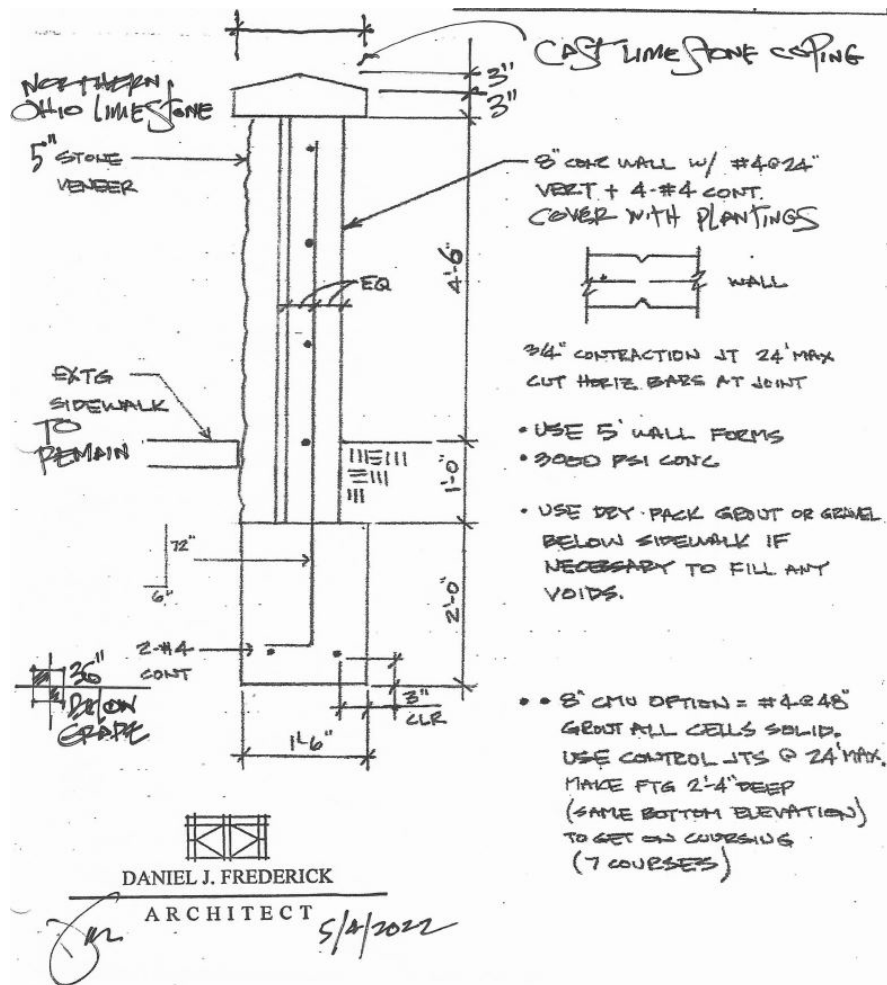 CAST LIMESTONE COPING
3"
3"
NORTHERN
OHIO LIMESTONE
5" STONE
VENEER
8" CONC WALL W/ #4@24"
VERT + 4-#4 CONT.
COVER WITH PLANTINGS
4'-6"
EQ
WALL
3/4" CONTRACTION JT 24' MAX
CUT HORIZ BARS AT JOINT
EXTG
SIDEWALK
TO
REMAIN
1'-0"
• USE 5' WALL FORMS
• 3000 PSI CONC
• USE DRY-PACK GROUT OR GRAVEL
BELOW SIDEWALK IF
NECESSARY TO FILL ANY
VOIDS.
72"
6"
2'-0"
2-#4
CONT
36"
BELOW
GRADE
3"
CLR
1'-6"
• • 8" CMU OPTION = #4@48"
GROUT ALL CELLS SOLID.
USE CONTROL JTS @ 24' MAX.
MAKE FTG 2'-4" DEEP
(SAME BOTTOM ELEVATION)
TO GET ON COURSING
(7 COURSES)
DANIEL J. FREDERICK
ARCHITECT
5/4/2022